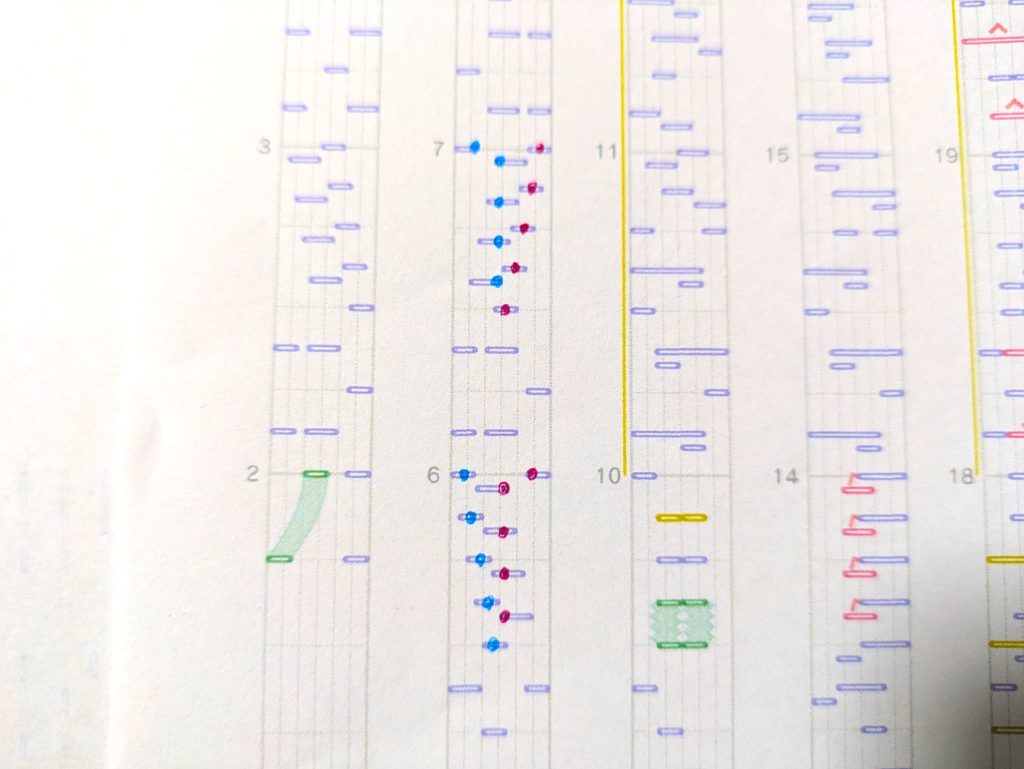 3 7 11 15 19
2 6 10 14 18